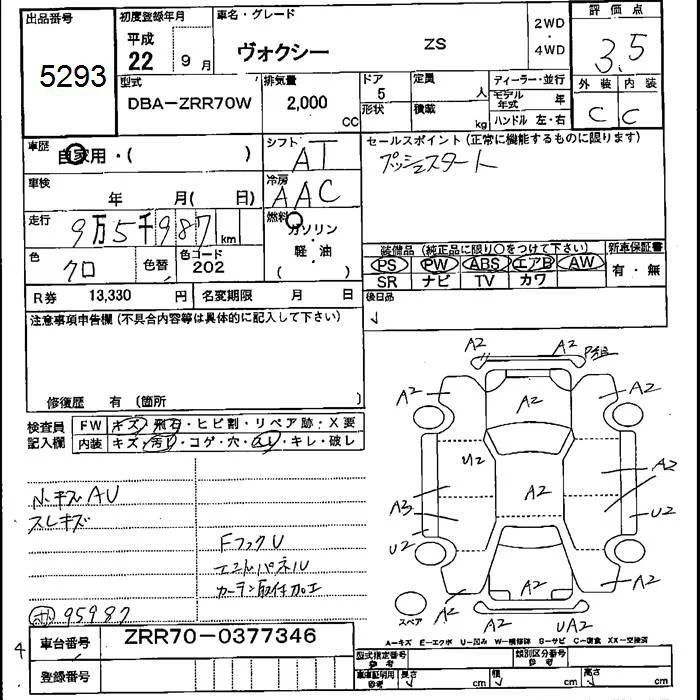 出品番号
5293
初度登録年月
平成
22年 9月
車名・グレード
ヴォクシー ZS
2WD
・
4WD
評価点
3.5
外装 内装
C C
型式
DBA-ZRR70W
排気量
2,000
CC
ドア
5
形状
定員
人
積載
kg
ディーラー・並行
モデル年式 年
ハンドル 左・右
車歴
自家用・( )
シフト
AT
車検
年 月( 日)
冷房
AAC
走行
9万5千987km
燃料
ガソリン・
軽・油
( )
色
クロ
色替
色コード
202
R券 13,330 円
名変期限 月 日
セールスポイント(正常に機能するものに限ります)
プッシュスタート
装備品(純正品に限り○をつけて下さい)
新車保証書
PS PW ABS エアB AW
SR ナビ TV カワ
有・無
後日品
注意事項申告欄(不具合内容等は具体的に記入して下さい)
修復歴 有(箇所 )
検査員
記入欄
FW キズ・飛石・ヒビ割・リペア跡・X要
内装 キズ・汚れ・コゲ・穴・スレ・キレ・破レ
ハ.キズ AU
スレキズ
FフックU
エンドパネル
カーテン取付加工
95987
A2 A2
A2 A2 A2
U2
A2
A3 A2
U2 U2
A2 A2 A2
A2 UA2
スペア
A-キズ E-エクボ U-凹み W-補修跡 S-サビ C-腐食 XX-交換済
4
車台番号 ZRR70-0377346
登録番号
型式指定番号
参考
類別区分番号
参考
車庫証明用
参考
長さ cm
幅 cm
高さ cm